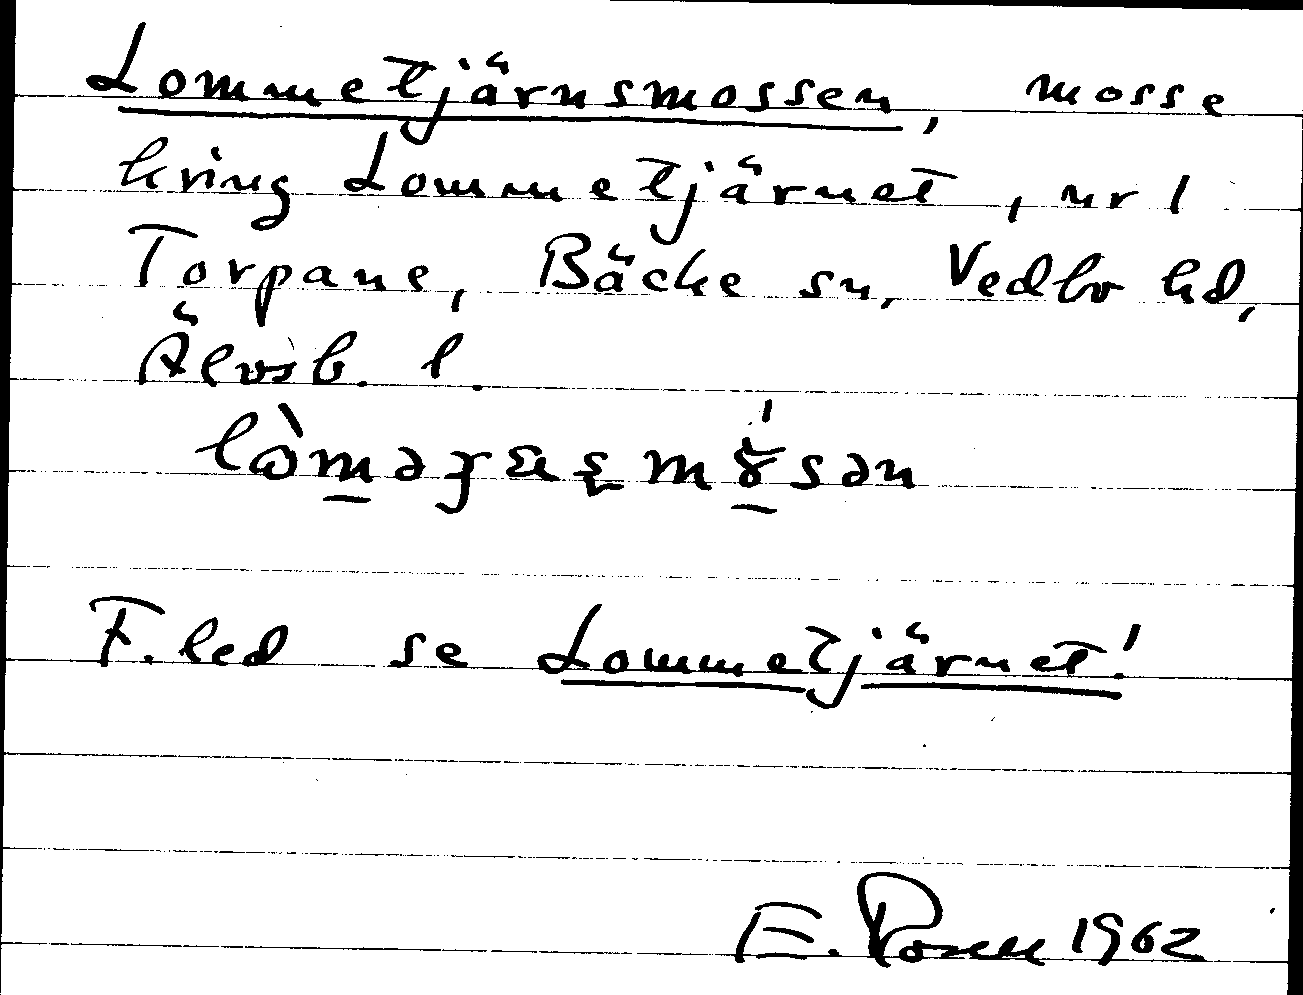 Lommetjärnsmossen, mosse
kring Lommetjärnet, nr 1
Torpane, Bäcke sn, Vedbo hd,
Älvsb. l.
F. led se Lommetjärnet!
E. 1962